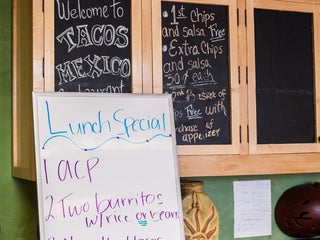 Welcome to
TACOS
MEXICO
Restaurant
1st Chips
and salsa Free
Extra Chips
and salsa
50¢ each
2nd
set of
Chips Free with
purchase of
appetizer
Lunch Special
1 ACP
2. Two burritos
w/rice or beans